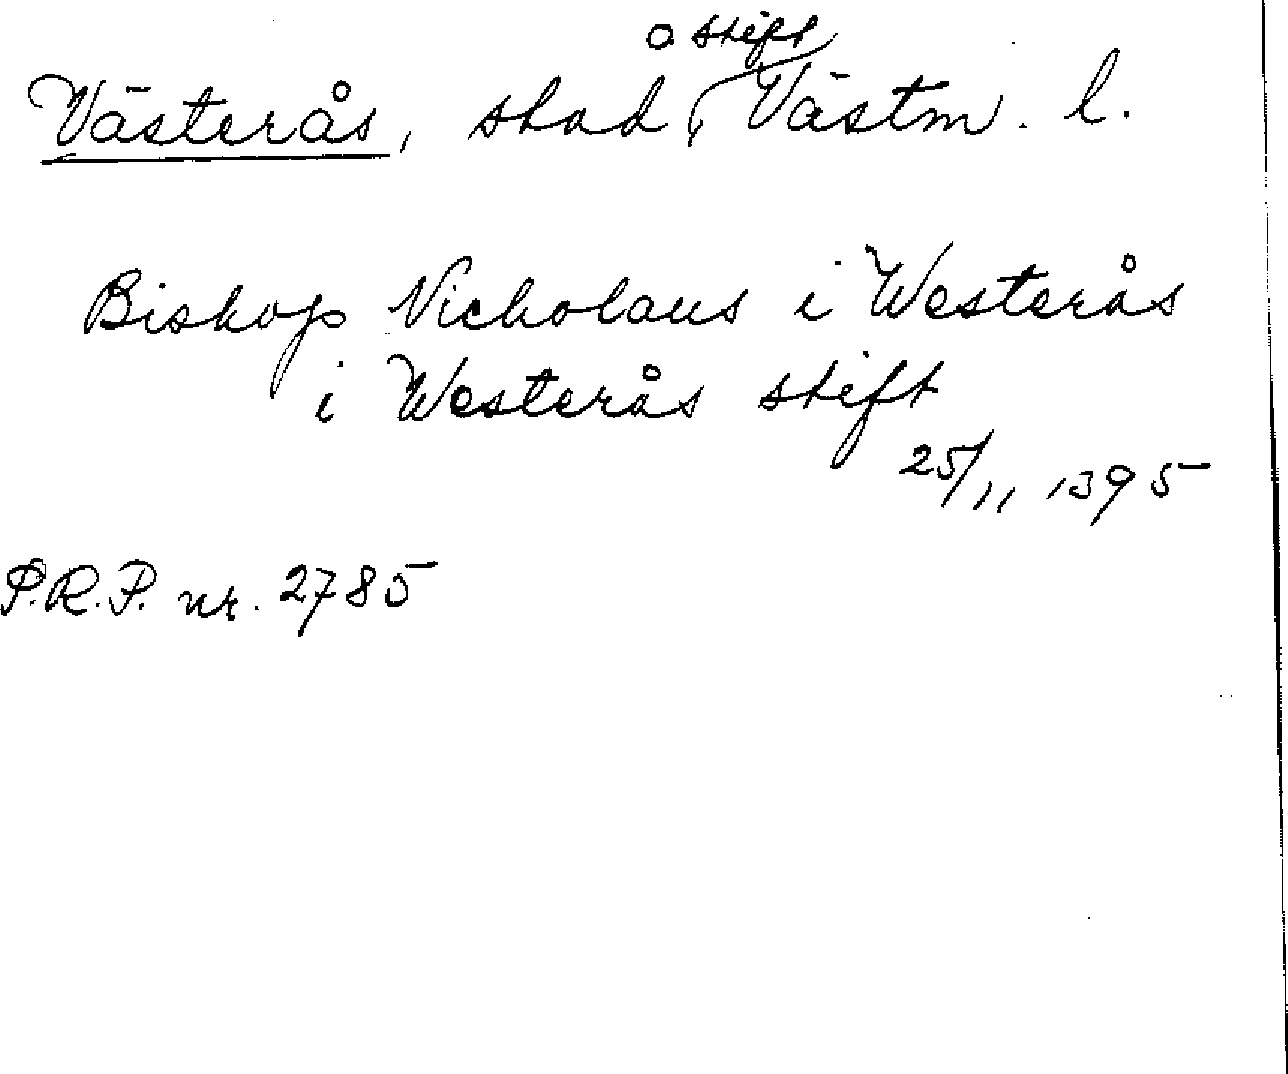 Västerås, stad o stift, Västm. l.
Biskop Nicholaus i Westerås
i Westerås stift
25/11 1395
P.R.P. nr. 2785